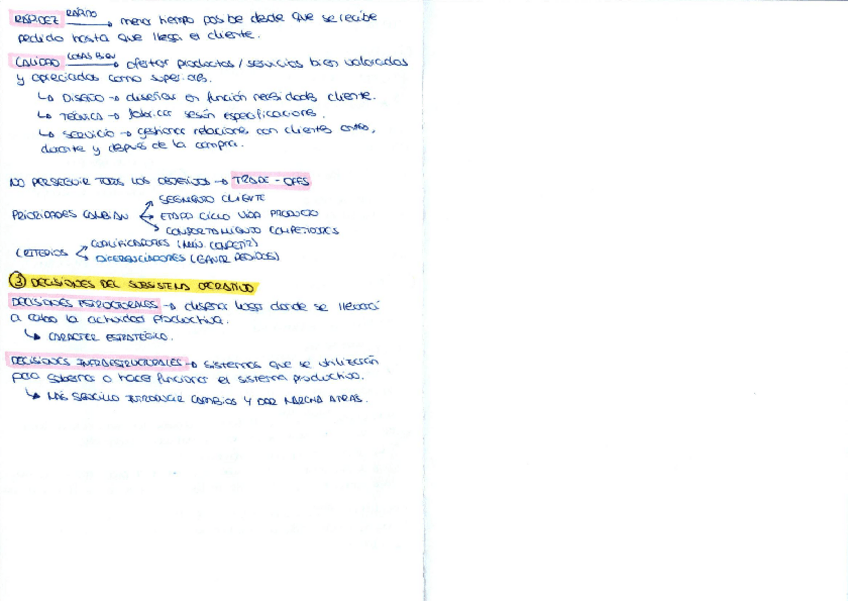 RAPIDEZ RÁPIDO → menor tiempo posible desde que se recibe
pedido hasta que llega al cliente.
CALIDAD COSAS BIEN → ofertar productos/servicios bien valorados
y apreciados como superiores.
↳ DISEÑO → diseñar en función necesidades cliente.
↳ TÉCNICA → fabricar según especificaciones.
↳ SERVICIO → gestionar relaciones con clientes antes,
durante y después de la compra.
NO PERSEGUIR TODOS LOS OBJETIVOS → TRADE-OFFS
SEGMENTO CLIENTE
PRIORIDADES CAMBIAN ETAPA CICLO VIDA PRODUCTO
COMPORTAMIENTO COMPETIDORES
CUALIFICADORES (MÍN. COMPETIR)
CRITERIOS
DIFERENCIADORES (GANAR PEDIDOS)
③ DECISIONES DEL SUBSISTEMA OPERATIVO
DECISIONES ESTRUCTURALES → diseñar lugar donde se llevará
a cabo la actividad productiva.
↳ CARÁCTER ESTRATÉGICO.
DECISIONES INFRAESTRUCTURALES → sistemas que se utilizarán
para gobernar o hacer funcionar el sistema productivo.
↳ MÁS SENCILLO INTRODUCIR CAMBIOS Y DAR MARCHA ATRÁS.